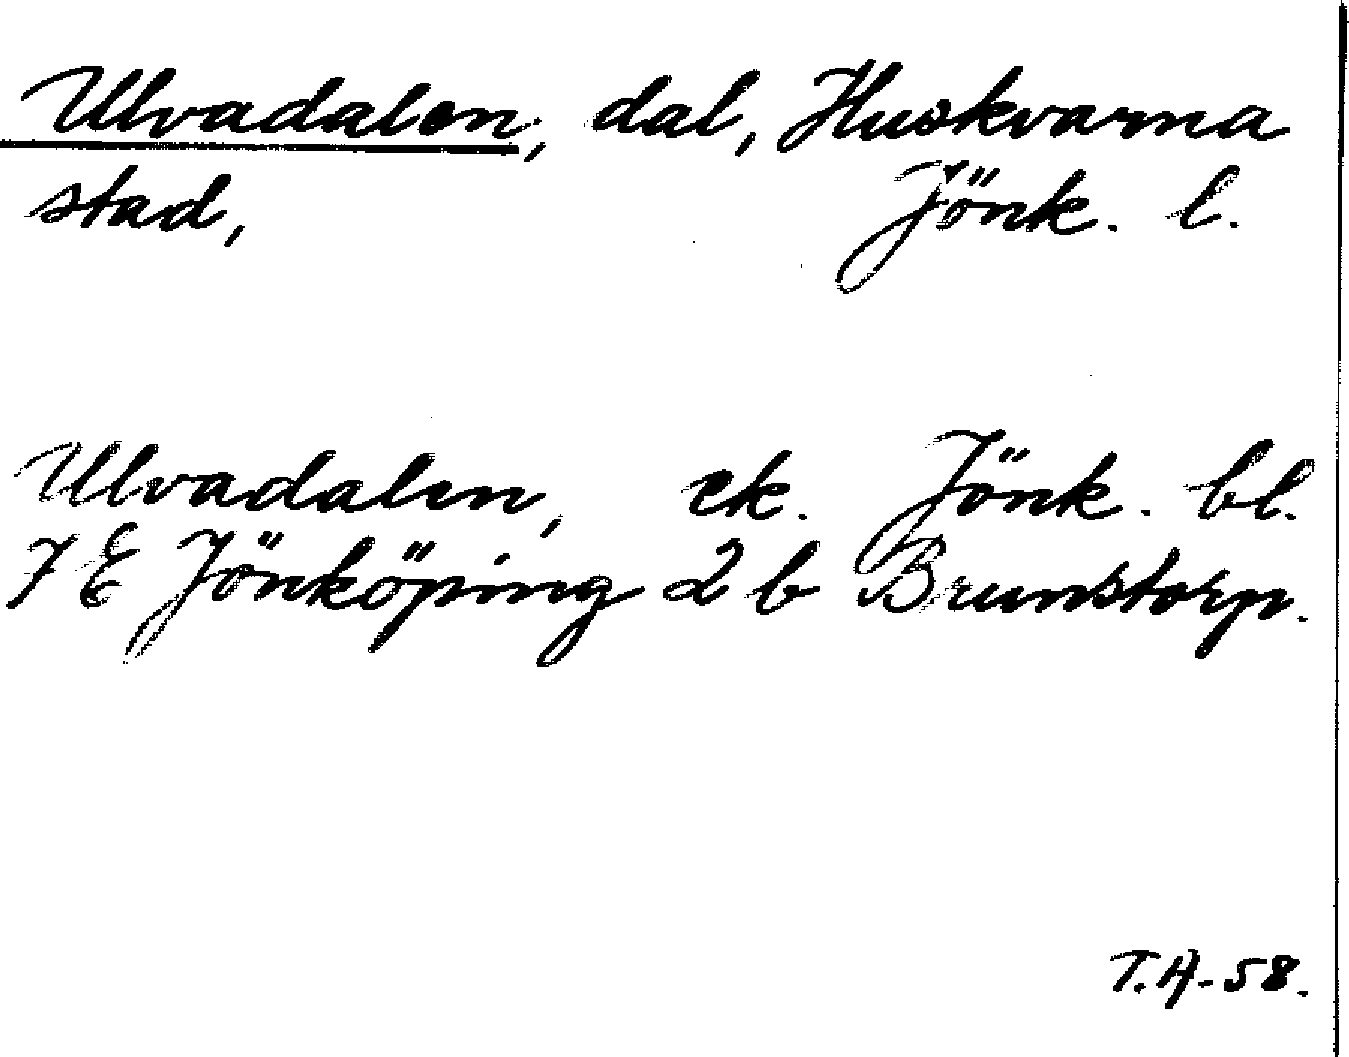 Ulvadalen, dal, Huskvarna
stad, Jönk. l.
Ulvadalen, ek. Jönk. bl.
7 E Jönköping 2 b Brunstorp.
T.A-58.